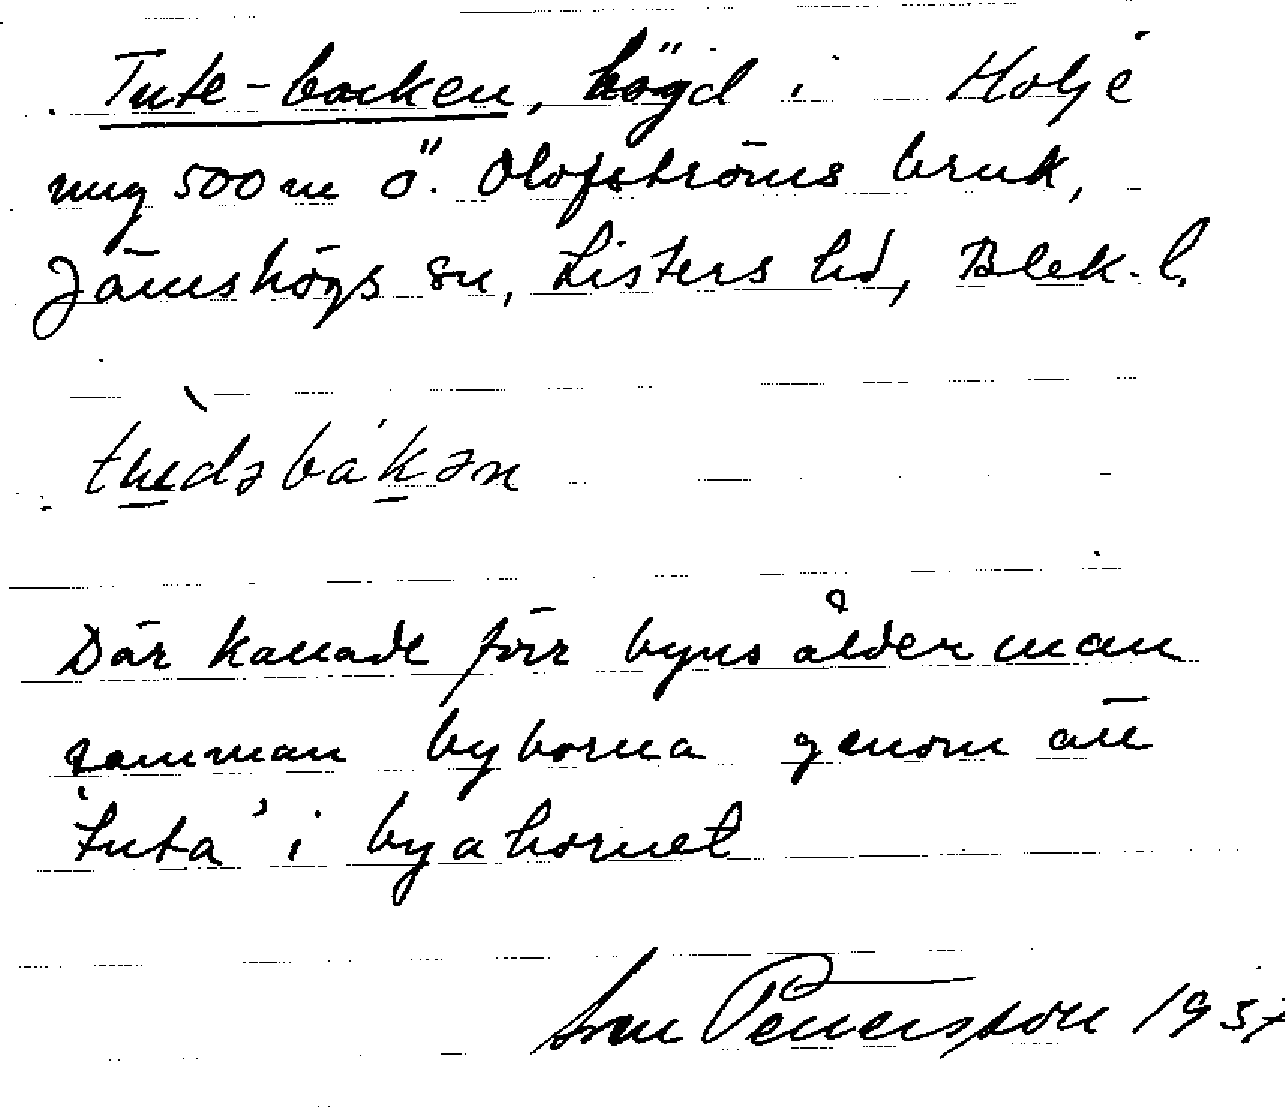 Tute-backen, höjd i Holje
ung 500 m ö. Olofströms bruk,
Jämshögs sn, Listers hd, Blek. l.
Där kallade förr byns ålderman
samman byborna genom att
'tuta' i byahornet
Pettersson 195